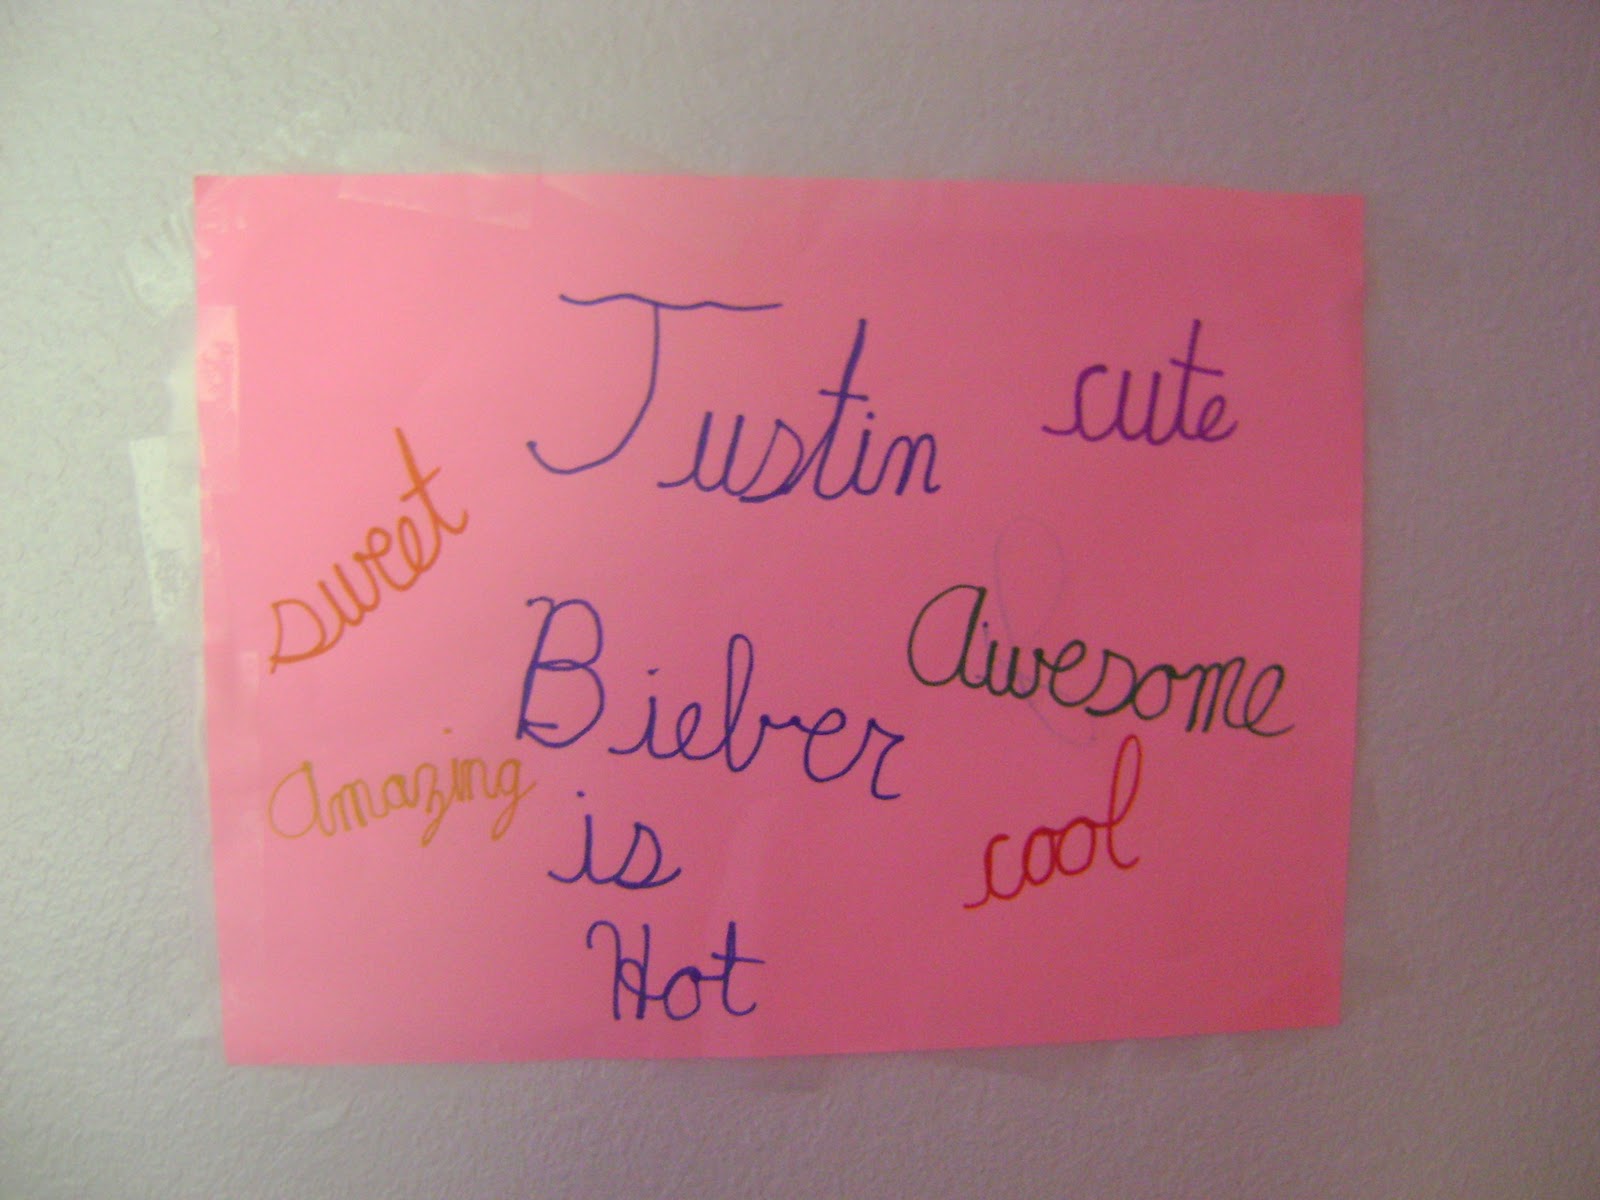 Justin
cute
sweet
Bieber
Awesome
Amazing
is
cool
Hot